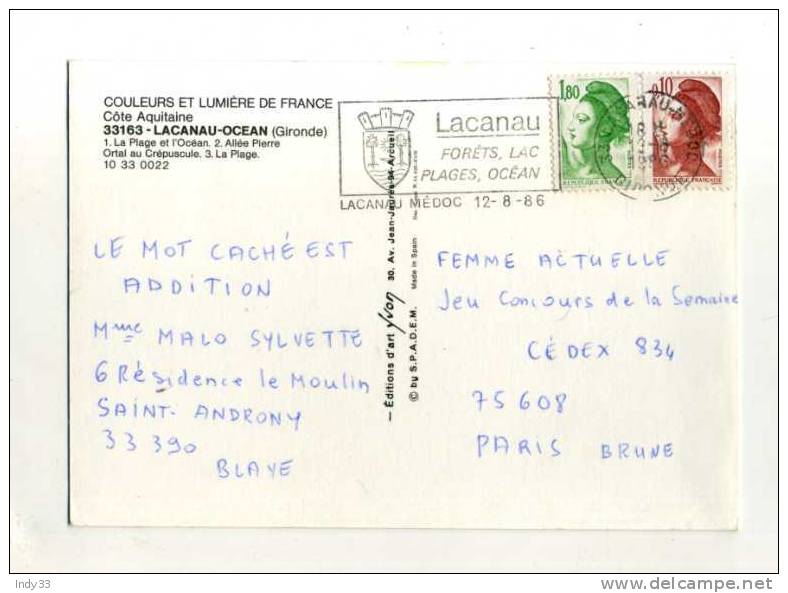 COULEURS ET LUMIÈRE DE FRANCE
Côte Aquitaine
33163 - LACANAU-OCEAN (Gironde)
1. La Plage et l'Océan. 2. Allée Pierre
Ortal au Crépuscule. 3. La Plage.
10 33 0022
Lacanau
FORÊTS, LAC
PLAGES, OCÉAN
LACANAU MÉDOC 12-8-86
1,80
REPUBLIQUE FRA
0,10
REPUBLIQUE FRANÇAISE
LE MOT CACHÉ EST
ADDITION
Mme MALO SYLVETTE
6 Résidence le Moulin
SAINT-ANDRONY
33390
BLAYE
— Éditions d'art yvon 30, Av. Jean-Jaurès Arcueil
© by S.P.A.D.E.M. Made in Spain
FEMME ACTUELLE
Jeu Concours de la Semaine
CÉDEX 834
75608
PARIS BRUNE
Indy33
delcampe.net